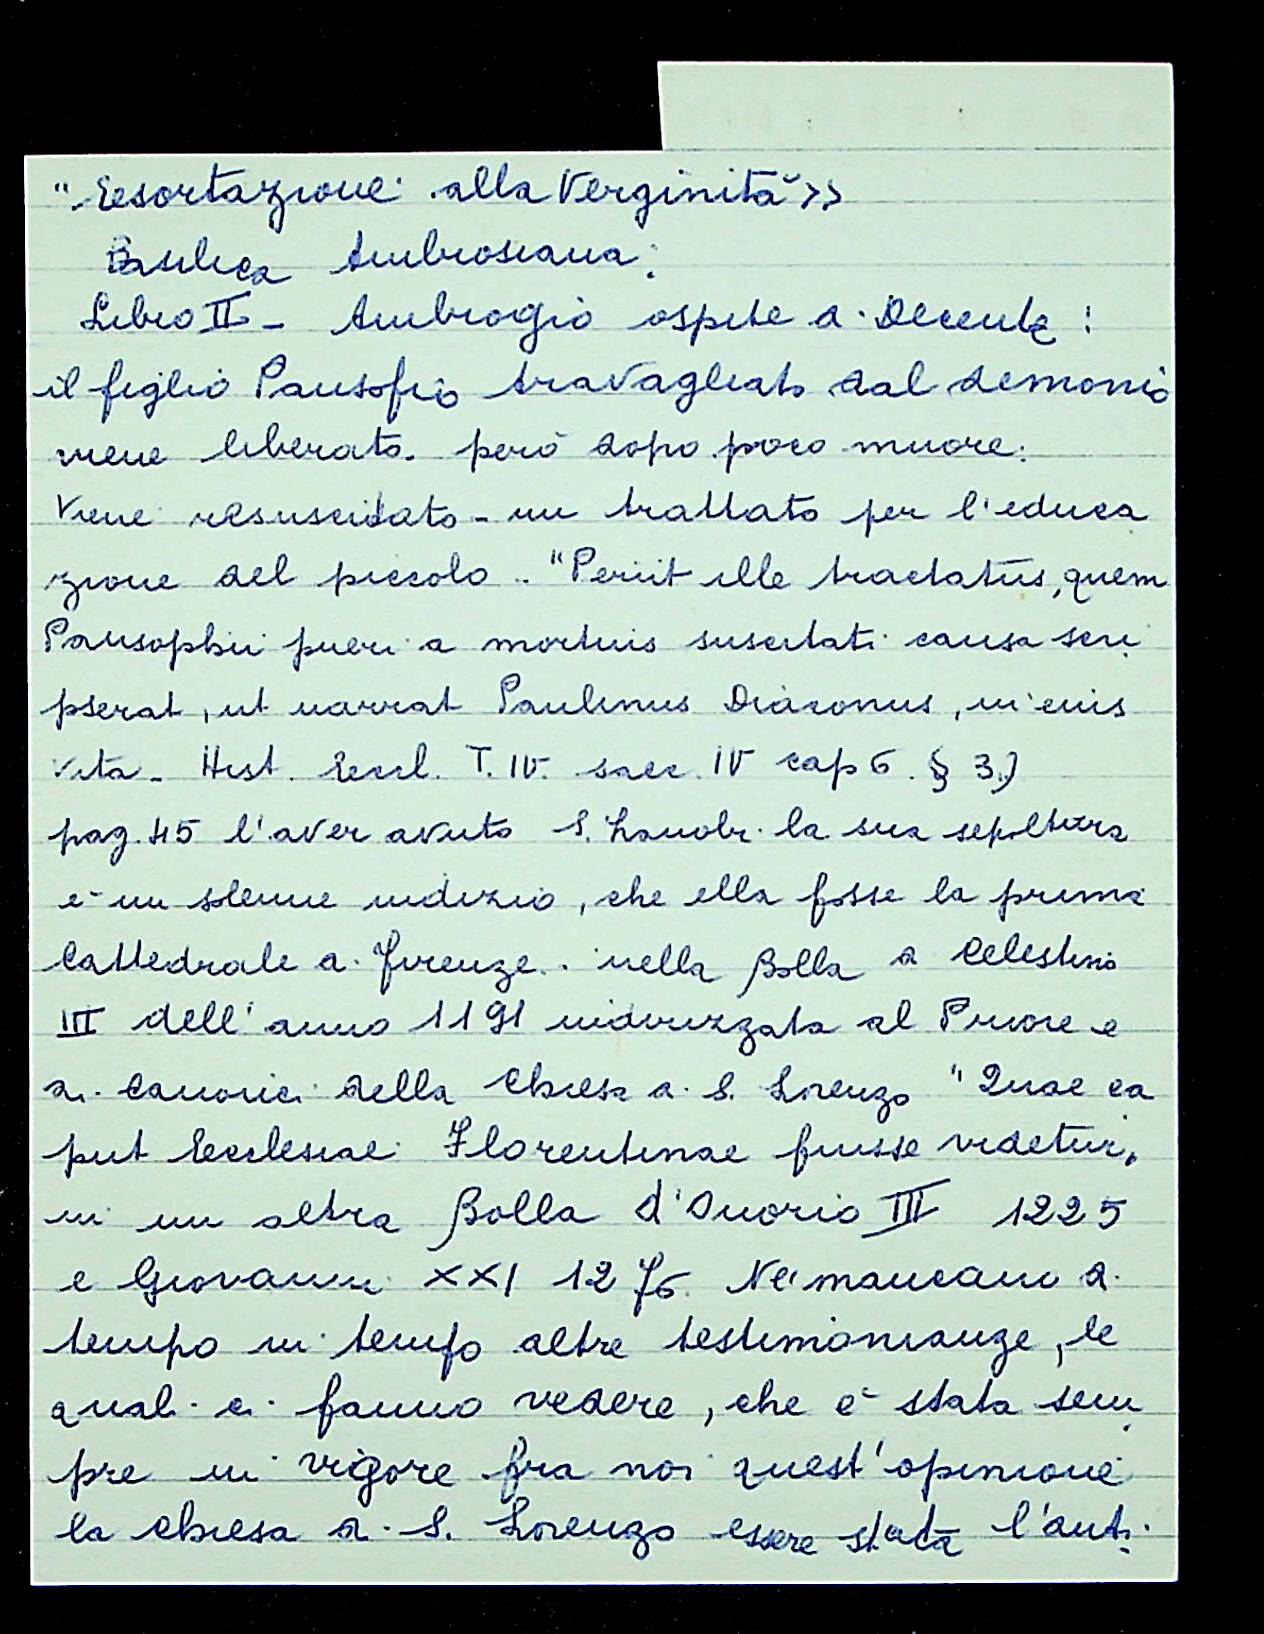 "Eesortazione alla Verginità »
Basilica Ambrosiana:
Libro II - Ambrogio ospite di Decente:
il figlio Pansofio travagliato dal demonio
viene liberato. però dopo poco muore.
Viene resuscitato - un trattato per l'educa
zione del piccolo .. "Periit ille tractatus, quem
Pansophii pueri a mortuis suscitati causa scri
pserat, ut narrat Paulinus Diaconus, in eius
vita - Hist. Eccl. T. IV. saec. IV cap 6. § 3.)
pag. 45 l'aver avuto S. Zanobi la sua sepoltura
è un solenne indizio, che ella fosse la prima
Cattedrale di Firenze. nella Bolla di Celestino
III dell'anno 1191 indirizzata al Priore e
ai Canonici della Chiesa di S. Lorenzo "Quae ca
put Ecclesiae Florentinae fuisse videtur,
in un altra Bolla d'Onorio III 1225
e Giovanni XXI 1276. Né mancano di
tempo in tempo altre testimonianze, le
quali ci fanno vedere, che è stata sem
pre in vigore fra noi quest'opinione
la chiesa di S. Lorenzo essere stata l'anti